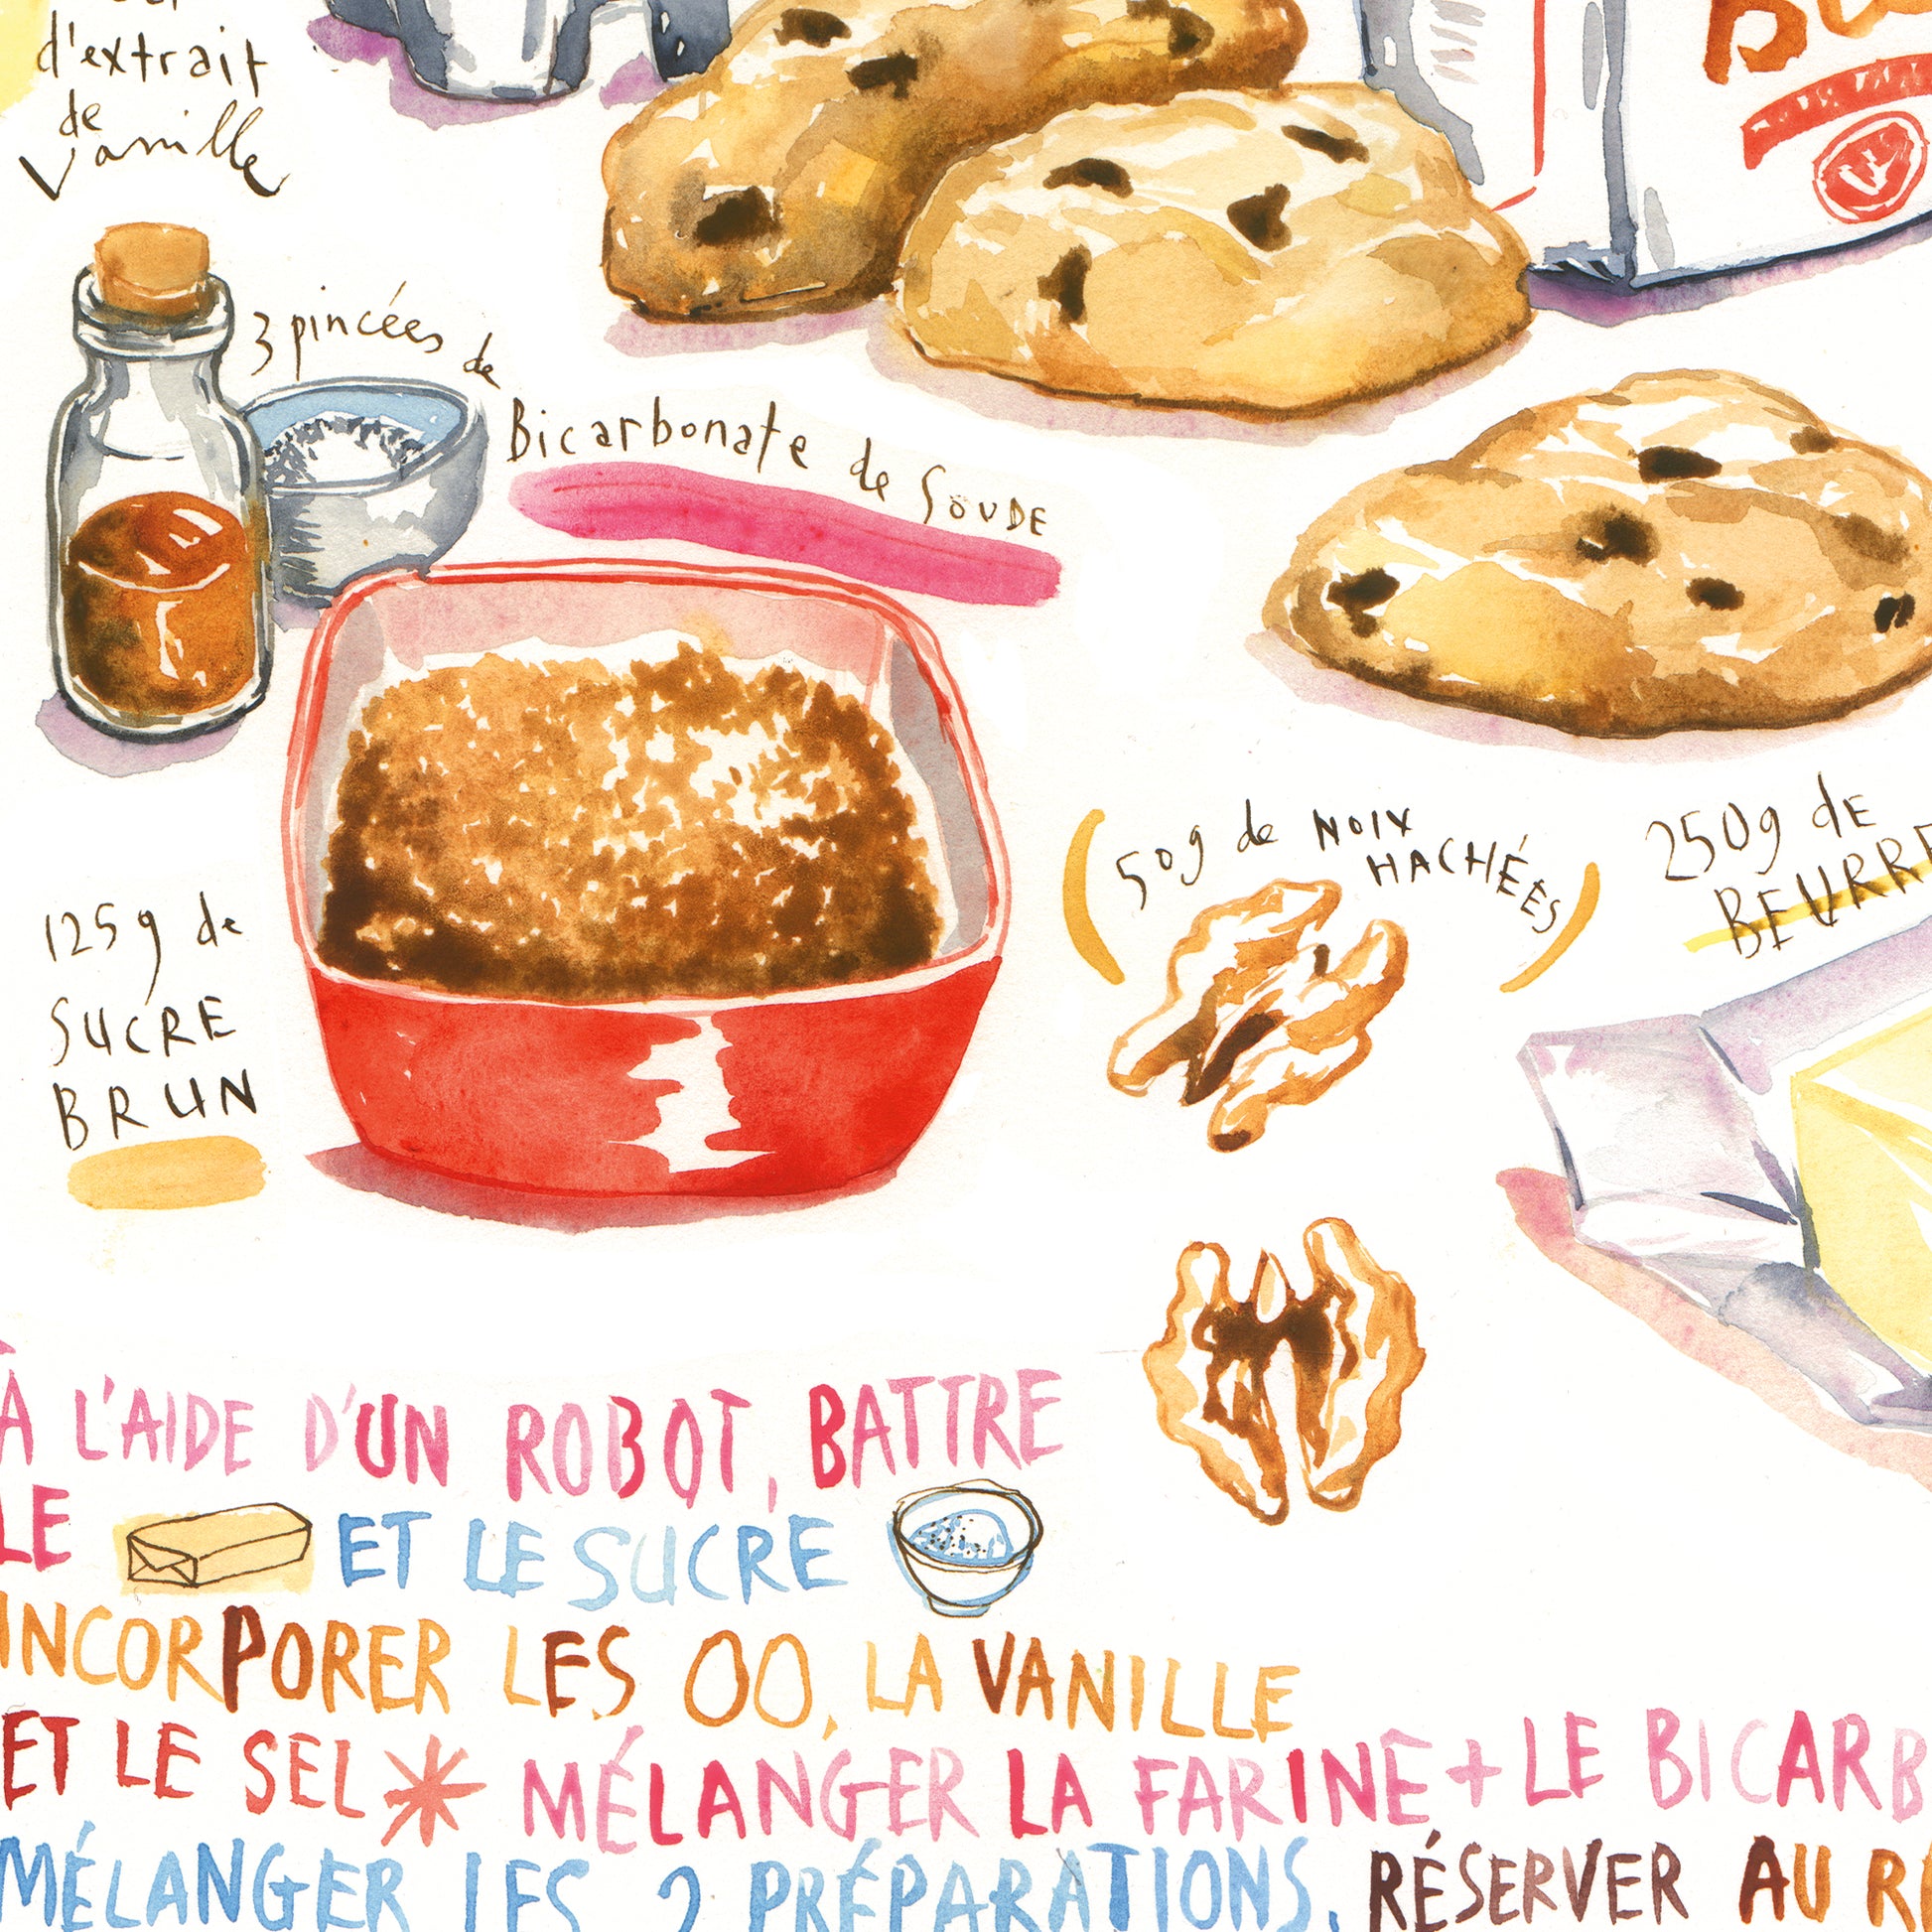 d'extrait
de
Vanille
3 pincées de
Bicarbonate de SOUDE
125g de
SUCRE
BRUN
(50g de NOIX
HACHÉES)
250g de
BEURRE
À L'AIDE D'UN ROBOT, BATTRE
LE ET LE SUCRE
INCORPORER LES OO, LA VANILLE
ET LE SEL * MÉLANGER LA FARINE + LE BICARB
MÉLANGER LES 2 PRÉPARATIONS. RÉSERVER AU